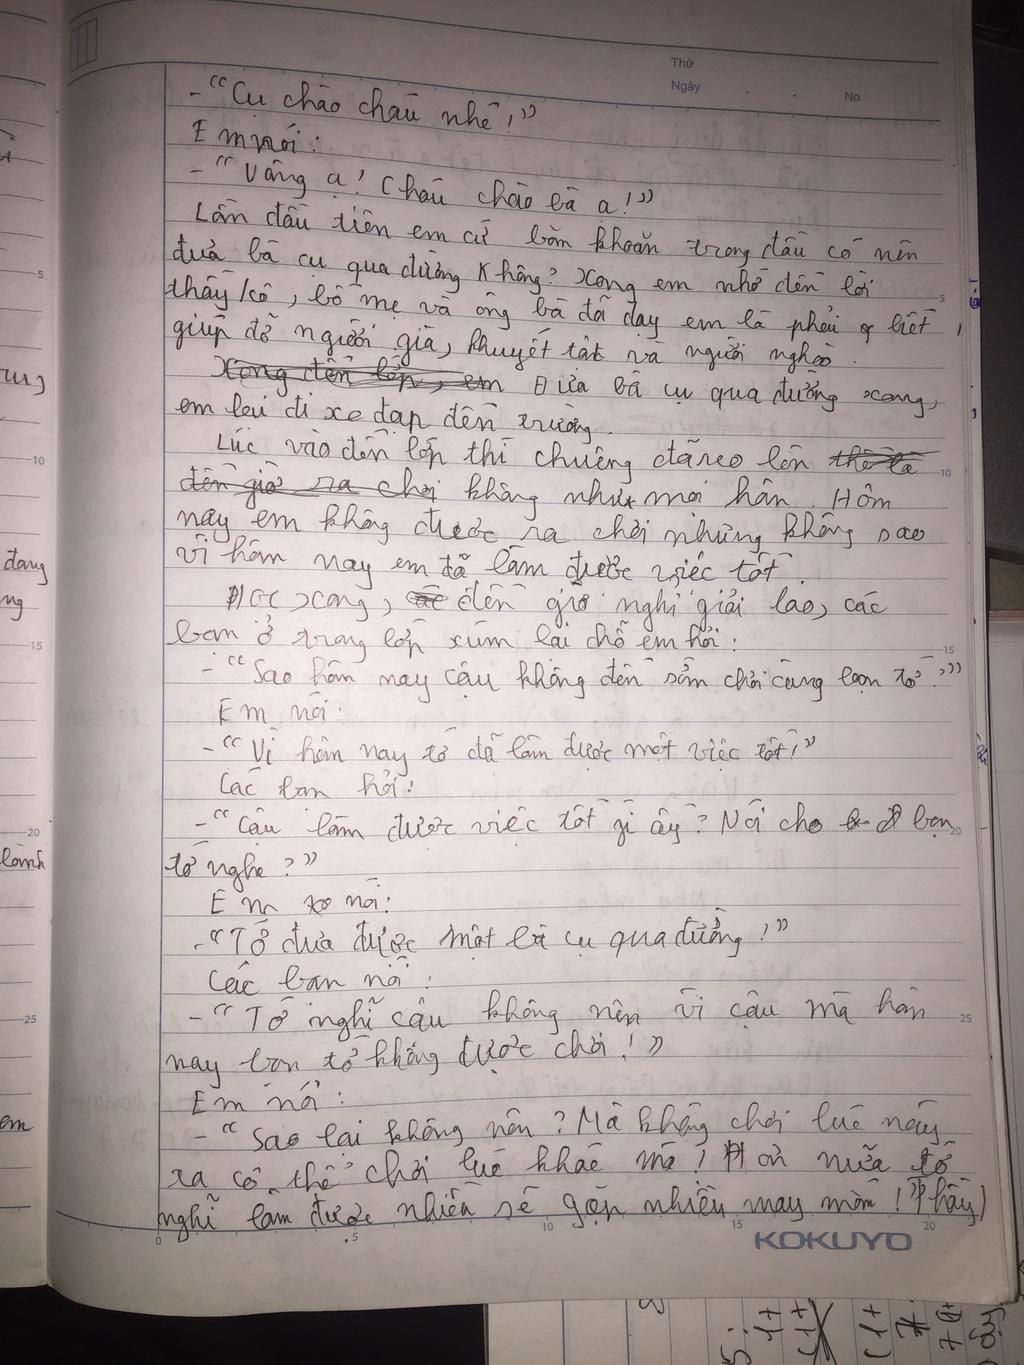 Thứ
Ngày
No.
- "Cụ chào cháu nhé!"
Em nói:
- "Vâng ạ! Cháu chào bà ạ!"
Lần đầu tiên em cứ băn khoăn trong đầu có nên
đưa bà cụ qua đường không? Xong em nhớ đến lời
thầy/cô, bố mẹ và ông bà đã dạy em là phải biết
giúp đỡ người già, khuyết tật và người nghèo.
Xong đến lớp, em Đưa bà cụ qua đường xong,
em lại đi xe đạp đến trường.
Lúc vào đến lớp thì chuông đã reo lên thế là
đến giờ ra chơi không như mọi hôn. Hôm
nay em không được ra chơi nhưng không sao
vì hôm nay em đã làm được việc tốt.
Học xong, đến giờ nghỉ giải lao, các
bạn ở trong lớp xúm lại chỗ em hỏi:
- "Sao hôm nay cậu không đến sớm chơi cùng bọn tớ?"
Em nói:
- "Vì hôm nay tớ đã làm được một việc tốt!"
Các bạn hỏi:
- "Cậu làm được việc tốt gì ấy? Nói cho bọn
tớ nghe?"
Em nói:
- "Tớ đưa được một bà cụ qua đường!"
Các bạn nói:
- "Tớ nghĩ cậu không nên vì cậu mà hôn
nay bọn tớ không được chơi!"
Em nói:
- "Sao lại không nên? Mà không chơi lúc này
ra có thể chơi lúc khác mà! Hơn nữa tớ
nghĩ làm được nhiều sẽ gặp nhiều may mắn!" Thầy/
KOKUYO